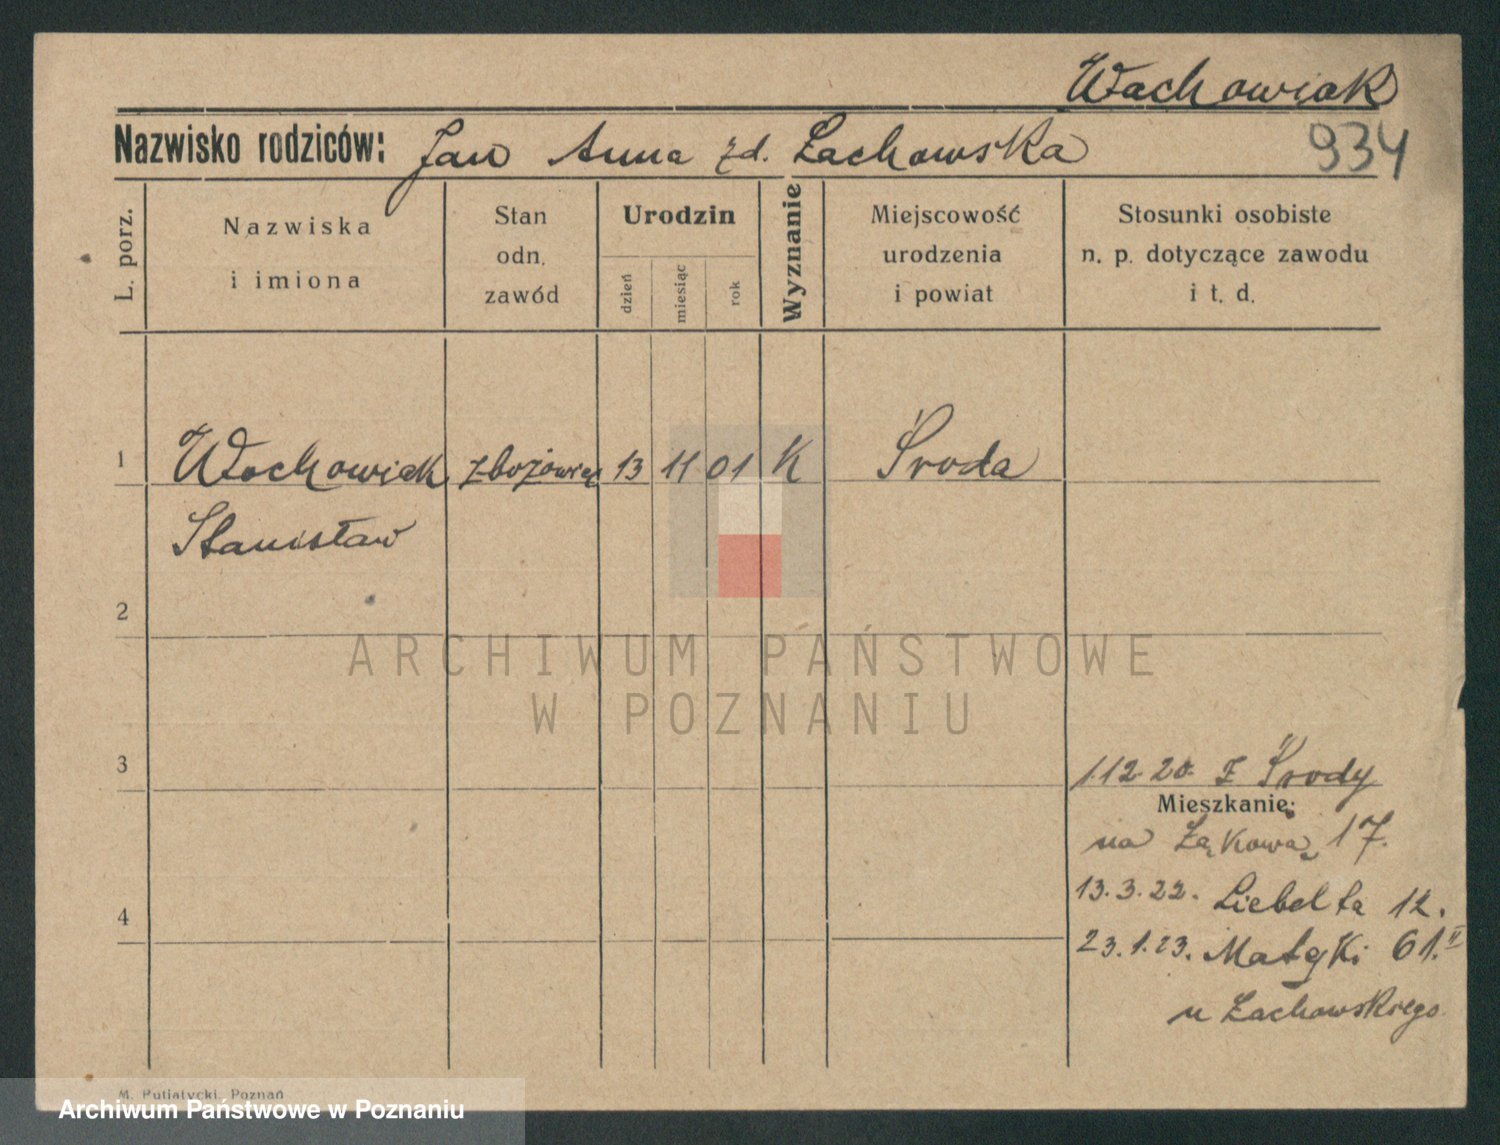 Wachowiak
Nazwisko rodziców: Jan Anna zd. Łachowska 934
L. porz.
Nazwiska
i imiona
Stan
odn.
zawód
Urodzin
dzień
miesiąc
rok
Wyznanie
Miejscowość
urodzenia
i powiat
Stosunki osobiste
n. p. dotyczące zawodu
i t. d.
1 Wachowiak zbożowiec 13 11 01 K Środa
Stanisław
2
ARCHIWUM PAŃSTWOWE
W POZNANIU
3
1.12.20. z Środy
Mieszkanie:
na Łąkową 17.
13.3.22. Libelta 12.
4
23.1.23. Matejki 61. II
u Łachowskiego
M. Putiatycki, Poznań
Archiwum Państwowe w Poznaniu